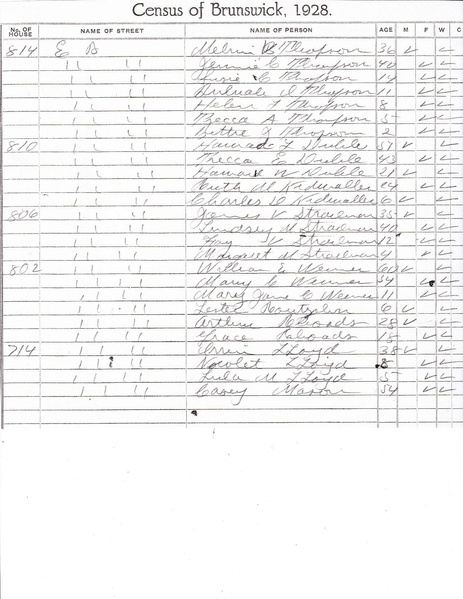 Census of Brunswick, 1928.
No. OF HOUSE NAME OF STREET NAME OF PERSON AGE M F W C
814 E B Melvin B Thompson 36 ✓ ✓
" " Jennie C Thompson 40 ✓ ✓
" " Susie C Thompson 14 ✓ ✓
" " D Thompson 11 ✓ ✓
" " Helen F Thompson 8 ✓ ✓
" " Becca A Thompson 5 ✓ ✓
" " Bettie J Thompson 2 ✓ ✓
810 " " Howard F 57 ✓ ✓
" " E 43 ✓ ✓
" " Howard W 21 ✓ ✓
" " Ruth M Kidwaller 24 ✓ ✓
" " Charles D Kidwaller 6 ✓ ✓
806 " " James V 35 ✓ ✓
" " Lindsey M 40 ✓ ✓
" " Fay V 12 ✓ ✓
" " Margaret M 4 ✓ ✓
802 " " William E Wenner 60 ✓ ✓
" " Mary C Wenner 54 ✓ ✓
" " Mary Jane C Wenner 11 ✓ ✓
" " Lester 6 ✓ ✓
" " Arthur Rhoads 28 ✓ ✓
" " Grace Rhoads 18 ✓ ✓
714 " " Irvin LLoyd 38 ✓ ✓
" " LLoyd 8 ✓ ✓
" " Lula M LLoyd 5 ✓ ✓
" " Casey Mason 54 ✓ ✓